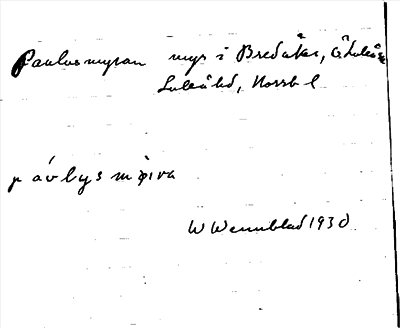 Paulusmyran myr i Bredåker, Öluleå
Luleåbd, Norrb l
påvlysmyra
W Wennblad 1930